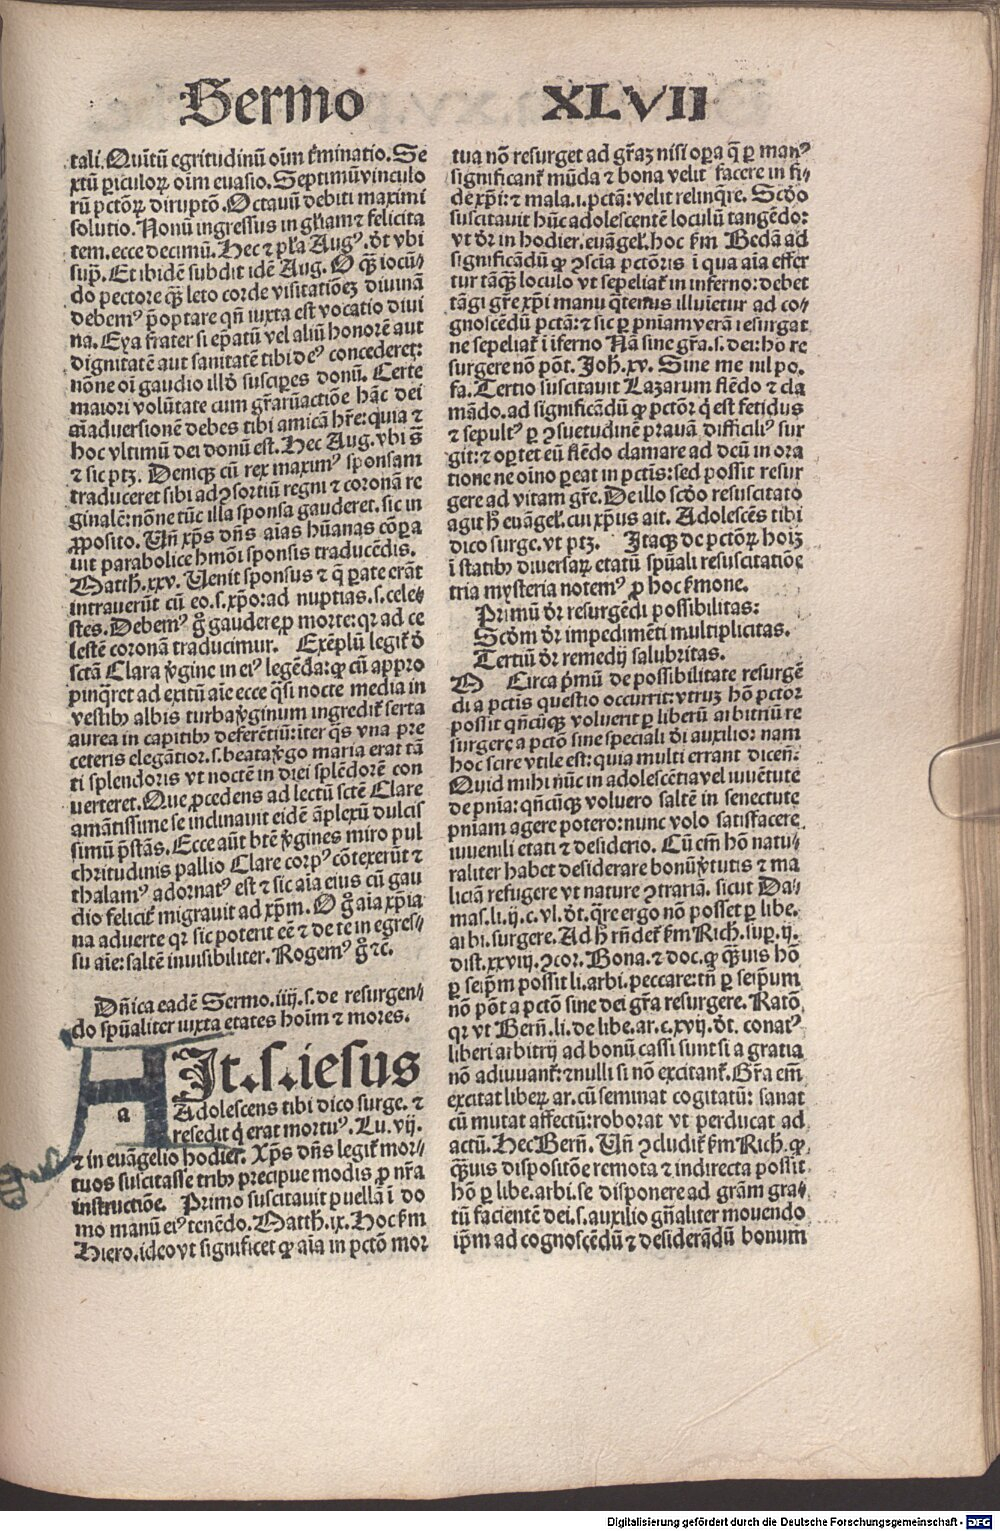 Sermo XLVII
tali. Quītū egritudinū oīm t̄minatio. Se
xtū ꝑiculoꝝ oīm euasio. Septimū vinculo
rū pctōꝝ diruptō. Octauū debiti maximi
solutio. Nonū ingressus in gl̄iam ⁊ felicita
tem. ecce decimū. Hec ⁊ pl̄a Augꝰ. d̄t vbi
supͣ. Et ibidē subdit idē Aug. O qͣꝫ iocū⸗
do pectore qͣꝫ leto corde visitatiōeꝫ diuinā
debemꝰ p̄optare qn̄ iuxta est vocatio diui
na. Eya frater si ep̄atū vel aliū honorē aut
dignitatē aut sanitatē tibi deꝰ concederet:
nōne oī gaudio illd̓ susciꝑes donū. Certe
maiori volūtate cum gr̄aꝝactiōe hāc dei
aīaduersionē debes tibi amicā hr̄e: quia ⁊
hoc vltimū dei donū est. Hec Aug. vbi s̄
⁊ sic ptꝫ. Deniqꝫ cū rex maximꝰ sponsam
traduceret sibi ad ꝯsortiū regni ⁊ coronā re
ginalē: nōne tūc illa sponsa gauderet. sic in
ꝓposito. Un̄ xp̄s dn̄s aīas hūanas cōꝑa
uit parabolice hmōi sponsis traducēdis.
Matth. xxv. Uenit sponsus ⁊ q̄ ꝑate erāt
intrauerūt cū eo. s. xp̄o: ad nuptias. s. cele⸗
stes. Debemꝰ g̊ gaudere ꝓ morte: qꝛ ad ce
lestē coronā traducimur. Exēplū legit᷑ d̓
sctā Clara v̓gine in eiꝰ legēda: ꝙ cū appro
pinq̄ret ad exitū aīe ecce qͣsi nocte media in
vestibꝫ albis turba v̓ginum ingredit᷑ serta
aurea in capitibꝫ deferētiū: iter qͣs vna pre
ceteris elegātior. s. beata v̓go maria erat tā
ti splendoris vt noctē in diei splēdorē con
uerteret. Que ꝓcedens ad lectū sctē Clare
amātissime se inclinauit eidē āplexū dulcis
simū p̄stās. Ecce aūt btē v̓gines miro pul
chritudinis pallio Clare corpꝰ cōtexerūt ⁊
thalamꝰ adornatꝰ est ⁊ sic aīa eius cū gau
dio felicit᷑ migrauit ad xp̄m. O g̊ aīa xp̄ia
na aduerte qꝛ sic poterit eē ⁊ de te in egres⸗
su aīe: saltē inuisibiliter. Rogemꝰ g̊ ⁊c̄.
Dn̄ica eadē Sermo. iiij. s. de resurgen⸗
do spūaliter iuxta etates hoīm ⁊ mores.
a
AIt. s. iesus
Adolescens tibi dico surge. ⁊
resedit q̓ erat mortuꝰ. Lu. vij.
⁊ in euāgelio hodier. Xp̄s dn̄s legit᷑ mor⸗
tuos suscitasse tribꝫ precipue modis ꝓ nr̄a
instructiōe. Primo suscitauit puellā ī do
mo manū eiꝰ tenēdo. Matth. ix. Hoc ẜm
Hiero. ideo vt significet ꝙ aīa in pctō mor
tua nō resurget ad gr̄aꝫ nisi oꝑa q̄ ꝑ manꝰ
significant᷑ mūda ⁊ bona velit facere in fi⸗
de xp̄i: ⁊ mala. i. pctā: velit relinq̄re. Scd̓o
suscitauit hūc adolescentē loculū tangēdo:
vt d̓r in hodier. euāgel̓. hoc ẜm Bedā ad
significādū ꝙ ꝯscīa pctōris ī qua aīa effer
tur tāqͣꝫ loculo vt sepeliat᷑ in inferno: debet
tāgi gr̄e xp̄i manu qͣtenus illuīetur ad co⸗
gnoscēdū pctā: ⁊ sic ꝑ pniam verā resurgat
ne sepeliat᷑ ī iferno Nā sine gr̄a. s. dei: hō re
surgere nō pōt. Joh. xv. Sine me nil po.
fa. Tertio suscitauit Lazarum flēdo ⁊ cla
mādo. ad significādū ꝙ pctōr q̓ est fetidus
⁊ sepultꝰ ꝑ ꝯsuetudinē prauā difficiliꝰ sur
git: ⁊ oꝑtet eū flēdo clamare ad deū in ora
tione ne oīno ꝑeat in pctīs: sed possit resur
gere ad vitam gr̄e. De illo scd̓o resuscitato
agit h̄ euāgel̓. cui xp̄us ait. Adolescēs tibi
dico surge. vt ptꝫ. Itaqꝫ de pctōꝝ hoīꝫ
ī statibꝫ diuersaꝝ etatū spūali resuscitatiōe
tria mysteria notemꝰ ꝓ hoc ẜmone.
Primū d̓r resurgēdi possibilitas:
Scd̓m d̓r impedimēti multiplicitas.
Tertiū d̓r remedij salubritas.
Circa pͥmū de possibilitate resurgē
di a pctīs questio occurrit: vtruꝫ hō pctōr
possit qn̄cūqꝫ voluerit ꝑ liberū arbitriū re
surgere a pctō sine speciali d̓i auxilio: nam
hoc scire vtile est: quia multi errant dicen̄.
Quid mihi nūc in adolescētia vel iuuētute
de pnīa: qn̄cūqꝫ voluero saltē in senectute
pniam agere potero: nunc volo satisfacere
iuuenili etati ⁊ desiderio. Cū em̄ hō natu⸗
raliter habet desiderare bonū v̓tutis ⁊ ma
liciā refugere vt nature ꝯtrariā. sicut Da⸗
mas. li. ij. c. vl. d̓t. qͣre ergo nō posset ꝑ libe.
arbi. surgere. Ad h̄ rn̄det᷑ ẜm Rich. suꝑ. ij.
dist. xxviij. ꝯcor. Bona. ⁊ doc. ꝙ qͣꝫuis hō
ꝑ seip̄m possit li. arbi. peccare: tn̄ ꝑ seip̄um
nō pōt a pctō sine dei gr̄a resurgere. Ratō.
qꝛ vt Bern̄. li. de libe. ar. c. xvij. d̓t. conatꝰ
liberi arbitrij ad bonū cassi sunt si a gratia
nō adiuuant᷑: ⁊ nulli si nō excitant᷑. Gr̄a em̄
excitat liberꝝ ar. cū seminat cogitatū: sanat
cū mutat affectū: roborat vt perducat ad
actū. Hec Bern̄. Un̄ ꝯcludit᷑ ẜm Rich. ꝙ
qͣꝫuis dispositōe remota ⁊ indirecta possit
hō ꝑ libe. arbi. se disponere ad grām gra⸗
tū facientē dei. s. auxilio gn̄aliter mouendo
ip̄m ad cognoscēdū ⁊ desiderādū bonum
Digitalisierung gefördert durch die Deutsche Forschungsgemeinschaft - DFG